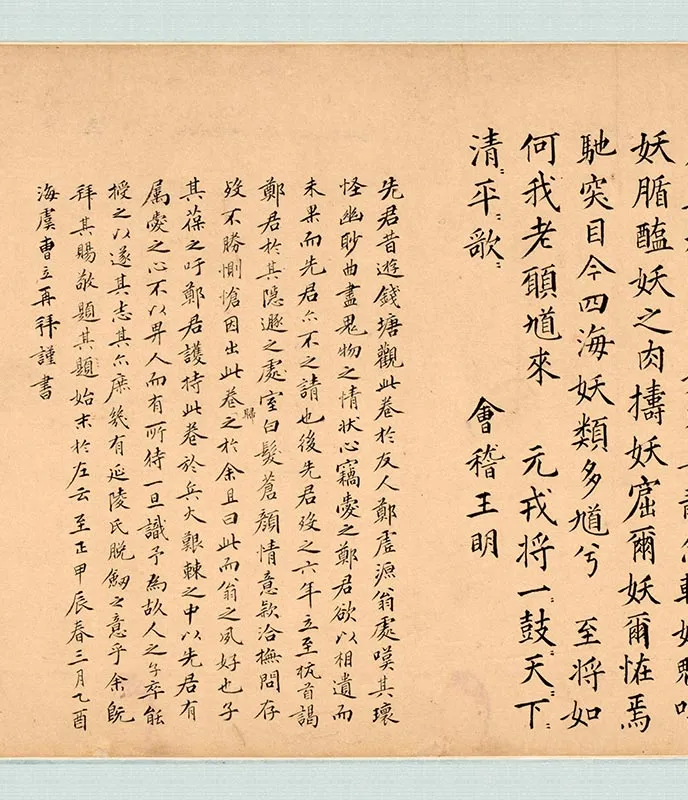 妖腯醢妖之肉擣妖窟爾妖爾恠焉
馳突目今四海妖類多馗兮 至將如
何我老頭馗來 元戎將一〻鼓〻天〻下〻
清〻平〻歌〻 會稽王明
先君昔遊錢塘觀此卷於友人鄭虗源翁處嘆其瓌
怪幽眇曲盡鬼物之情狀心竊愛之鄭君欲以相遺而
未果而先君亦不之請也後先君歿之六年立至杭首謁
鄭君於其隱遯之處室白髮蒼顏情意款洽撫問存
歿不勝惻愴因出此卷歸之於余且曰此而翁之夙好也子
其葆之吁鄭君護持此卷於兵火艱棘之中以先君有
屬愛之心不以畀人而有所待一旦識予為故人之子卒能
授之以遂其志其亦庶幾有延陵氏脫劒之意乎余既
拜其賜敬題其題始末於左云至正甲辰春三月乙酉
海虞曹立再拜謹書